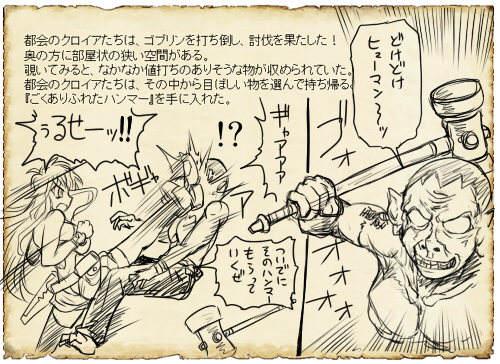 都会のクロイアたちは、ゴブリンを打ち倒し、討伐を果たした！
奥の方に部屋状の狭い空間がある。
覗いてみると、なかなか値打ちのありそうな物が収められていた。
都会のクロイアたちは、その中から目ぼしい物を選んで持ち帰る。
『ごくありふれたハンマー』を手に入れた。
どけどけ
ヒューマン〜〜ッ
ブォ
フォオオオ
ギャアアアア
!?
うるせーッ!!
ボギャア
ついでに
そのハンマー
もらって
いくぜ